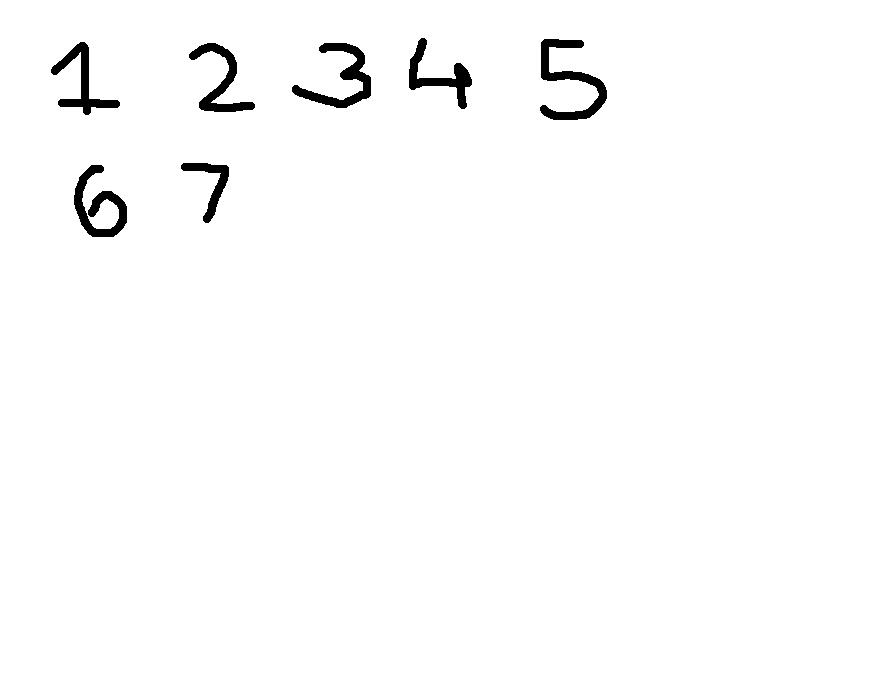 1 2 3 4 5
6 7